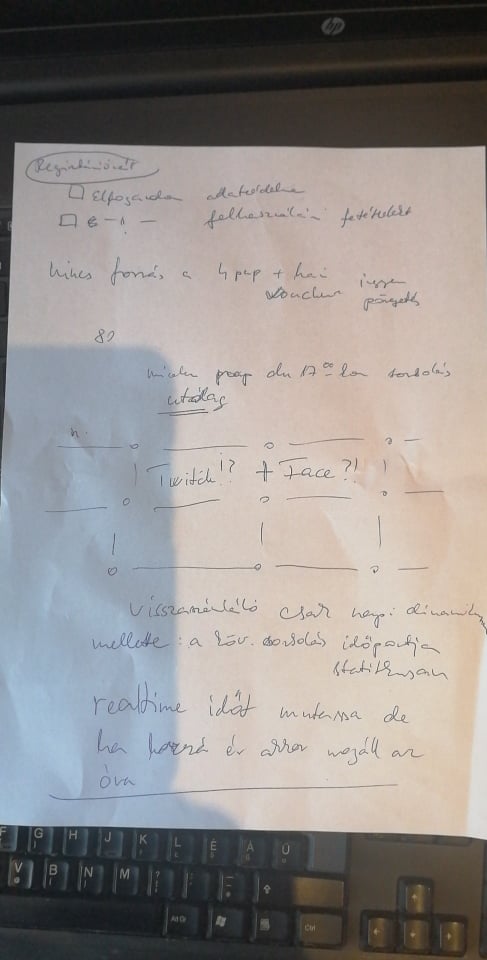 hp
Regisztrációnál
Elfogadom adatvédelmi
felhasználási feltételeket
nincs forrás a + havi ingyen
voucher pörgetés
80
minden nap du 17 00 kor sorsolás
utólag
h.
Twitch!? + Face?!
Visszaszámláló csak napi dinamikus
mellette: a köv. sorsolás időpontja
statikusan
realtime időt mutassa de
ha hozzá ér akkor megáll az
óra
F G H J K L É Á Ű
V B N M
Alt Gr Ctrl